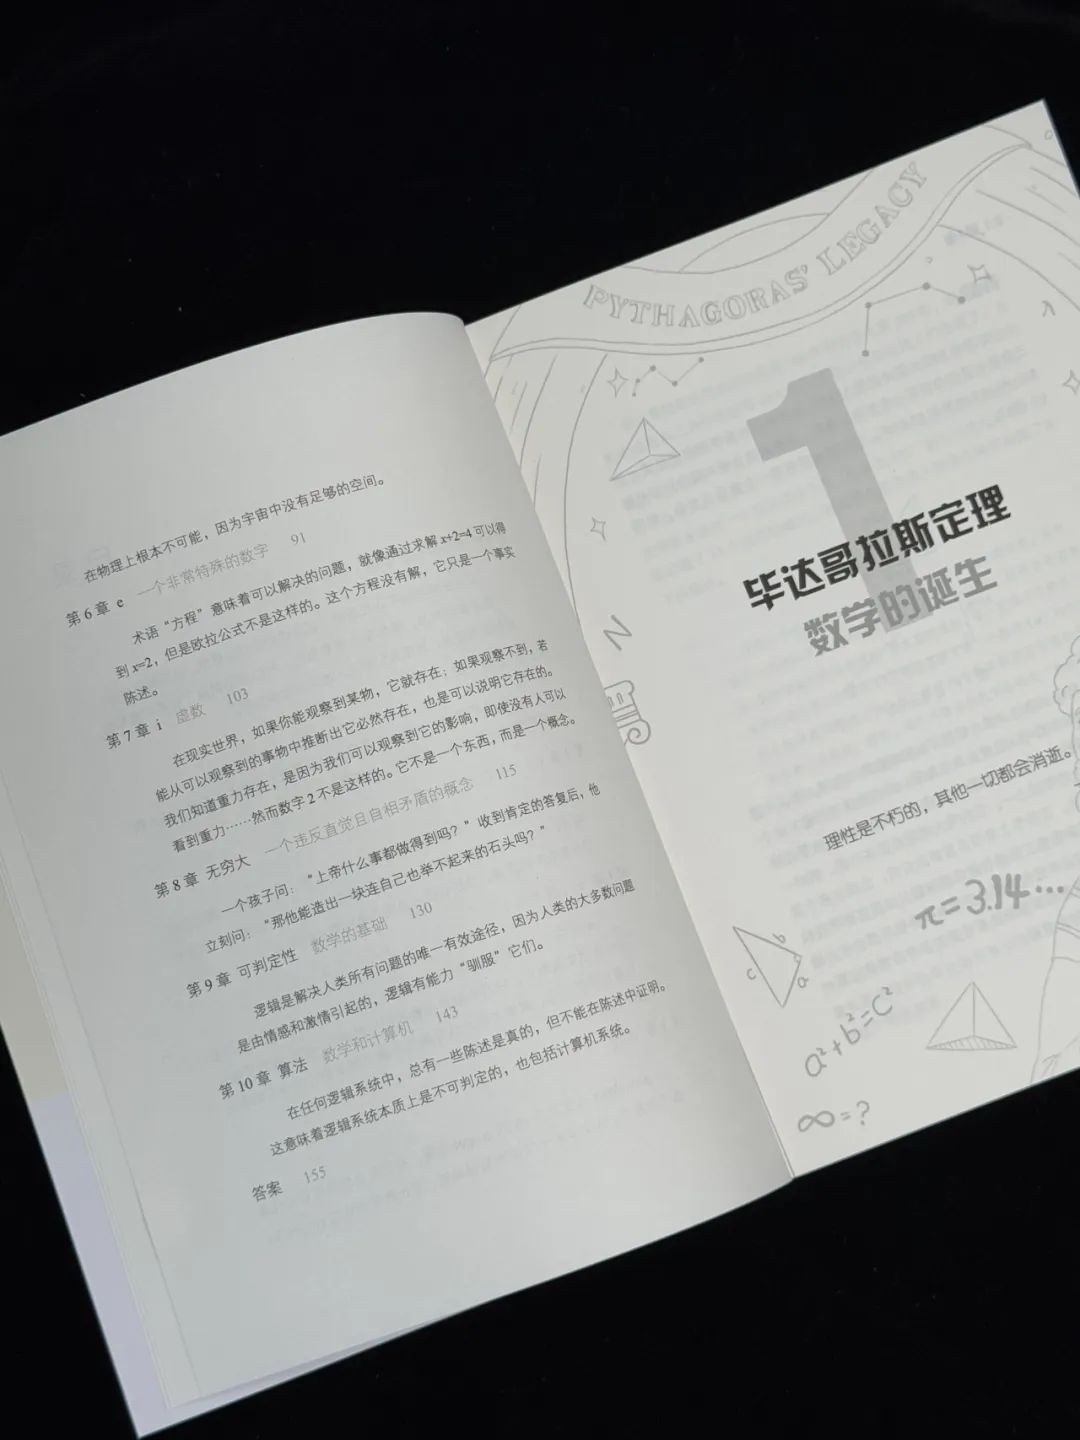 在物理上根本不可能，因为宇宙中没有足够的空间。
第 6 章 e 一个非常特殊的数字 91
术语“方程”意味着可以解决的问题，就像通过求解 x+2=4 可以得
到 x=2，但是欧拉公式不是这样的。这个方程没有解，它只是一个事实
陈述。
第 7 章 i 虚数 103
在现实世界，如果你能观察到某物，它就存在；如果观察不到，若
能从可以观察到的事物中推断出它必然存在，也是可以说明它存在的。
我们知道重力存在，是因为我们可以观察到它的影响，即使没有人可以
看到重力……然而数字 2 不是这样的。它不是一个东西，而是一个概念。
第 8 章 无穷大 一个违反直觉且自相矛盾的概念 115
一个孩子问：“上帝什么事都做得到吗？”收到肯定的答复后，他
立刻问：“那他能造出一块连自己也举不起来的石头吗？”
第 9 章 可判定性 数学的基础 130
逻辑是解决人类所有问题的唯一有效途径，因为人类的大多数问题
是由情感和激情引起的，逻辑有能力“驯服”它们。
第 10 章 算法 数学和计算机 143
在任何逻辑系统中，总有一些陈述是真的，但不能在陈述中证明。
这意味着逻辑系统本质上是不可判定的，也包括计算机系统。
答案 155
PYTHAGORAS' LEGACY
1
毕达哥拉斯定理
数学的诞生
理性是不朽的，其他一切都会消逝。
π=3.14…
c b a
a²+b²=c²
∞=?